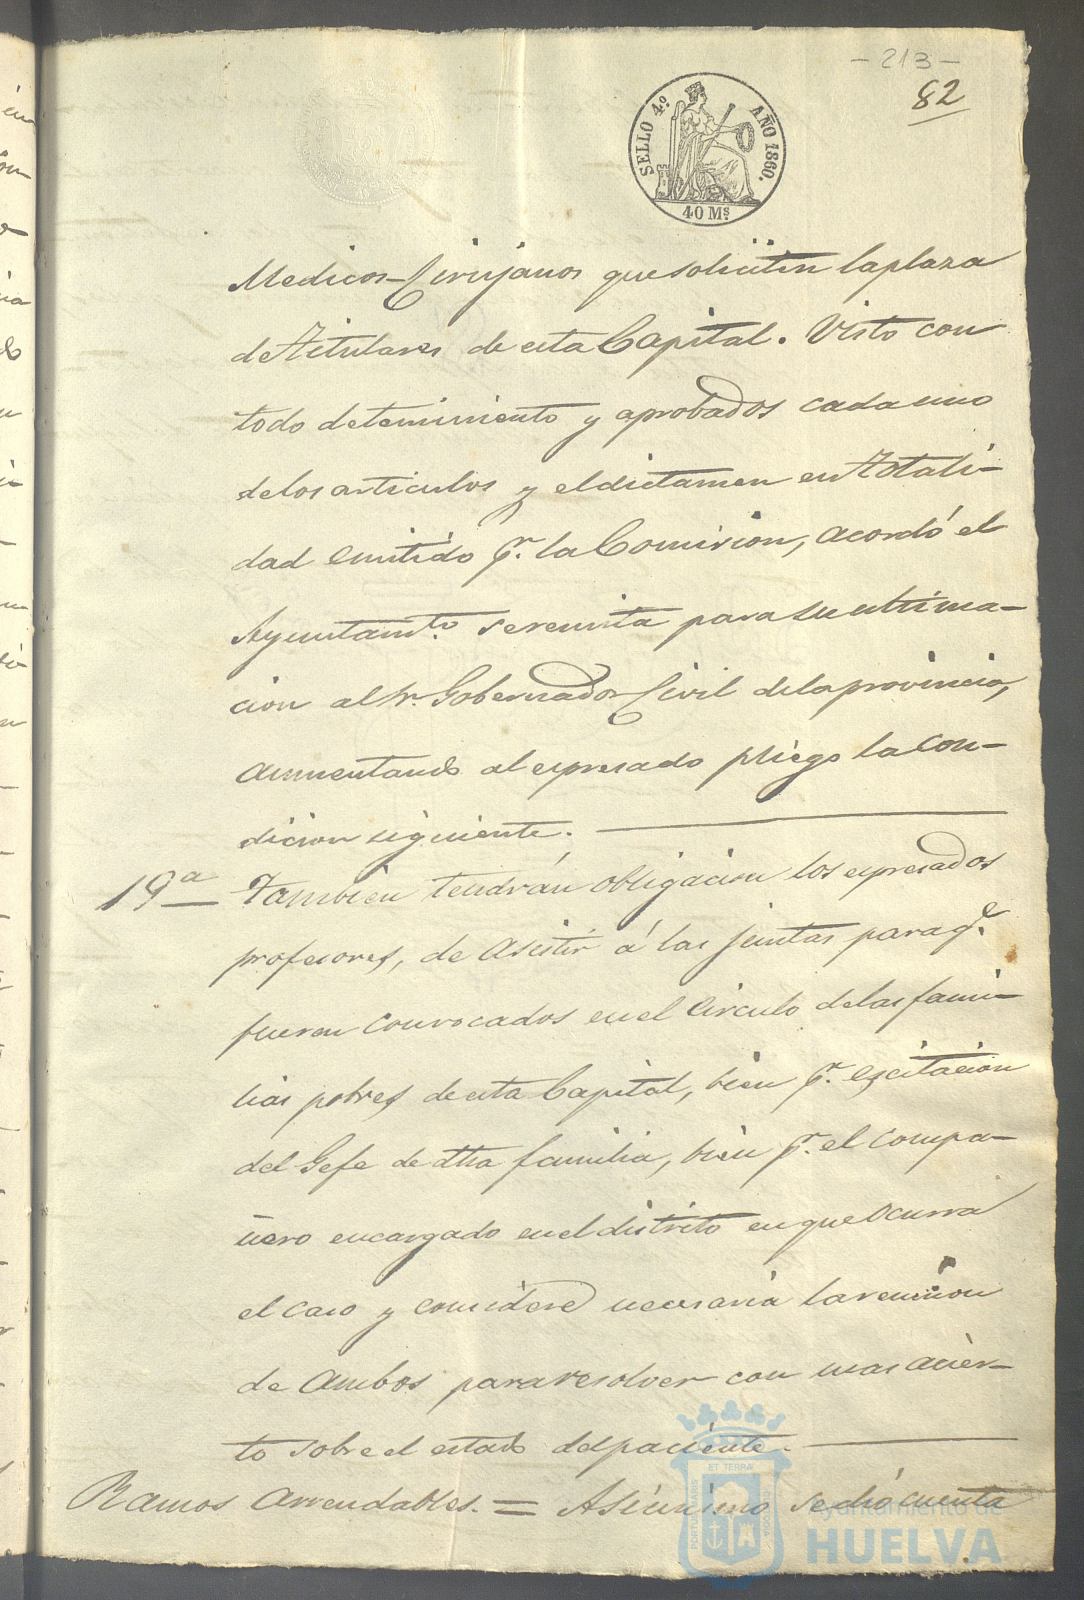 - 213 -
82
SELLO 4.º AÑO 1860.
40 Ms.
Medicos-Cirujanos que soliciten la plaza
de Titulares de esta Capital. Visto con
todo detenimiento y aprobados cada uno
de los articulos y el dictamen en totali-
dad emitido pr. la Comision, acordó el
Ayuntamto. se remita para su ultima-
cion al Sr. Gobernador Civil de la provincia,
aumentando al espresado pliego la con-
dicion siguiente.
19ª Tambien tendrán obligacion los espresados
profesores, de asistir á las juntas para qe.
fueren convocados en el circulo de las fami-
lias pobres de esta Capital, bien pr. escitacion
del Gefe de dha familia, bien pr. el compa-
ñero encargado en el distrito en que ocurra
el caso y considere necesaria la reunion
de ambos para resolver con mas acier-
to sobre el estado del paciente.
Ramos arrendables. = Asimismo se dió cuenta
PORTUS MARIS ET TERRAE CUSTODIA
Ayuntamiento de
HUELVA